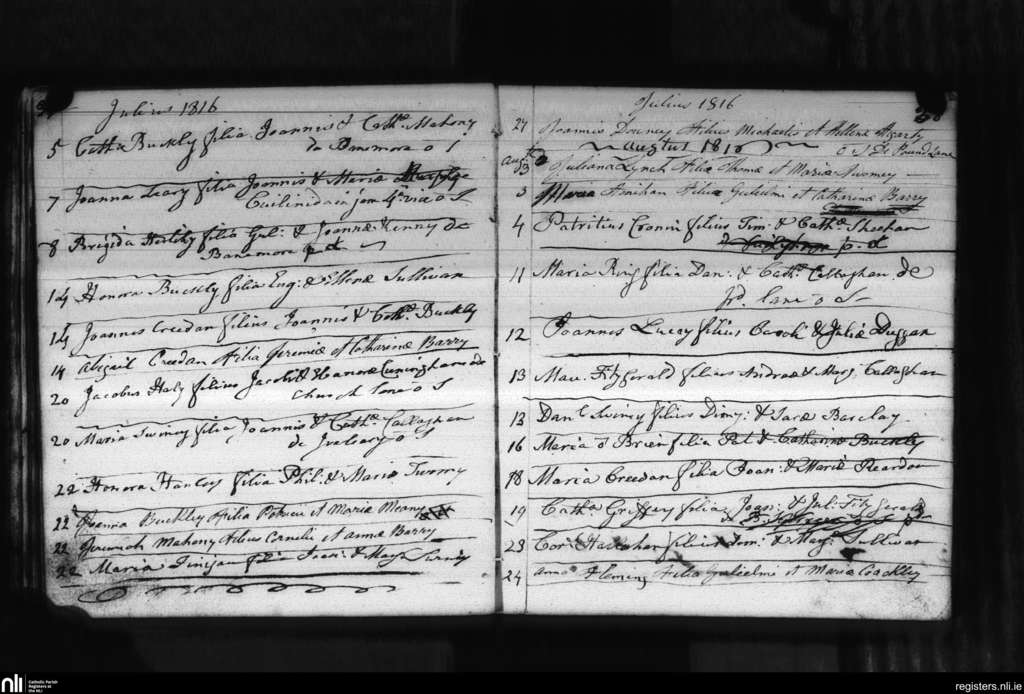 Julius 1816
5 Cath.a Buckly filia Joannis & Cath.e Mahony
de Banemore o S
7 Joanna Leary filia Joannis & Mariæ
8 Brigida filia Gul: & Joannæ Kenny de
Banemore p.d
14 Honora Buckly filia Eug: & Ellenæ Sullivan
14 Joannes Creedan filius Joannis & Cath.e Buckly
14 Abigail Creedan filia Jeremiæ et Catharinæ Barry
20 Jacobus Haly filius Jacobi & Honoræ Cuningham de
Church lane o S
20 Maria Swiney filia Joannis & Cath.e Callaghan
de o
22 Honora Hanlory filia Phil: & Mariæ Tuomy
22 Joanna Buckley filia Patricii et Mariæ Meany
22 Jeremiah Mahony filius Cornelii et Annæ Barry
22 Maria Finigan filia & Mary
Julius 1816
27 Joannis Downey filius Michaelis et Hellenæ Hegarty
Augustus 1816 o S Pound Lane
Aug.t 3 Juliana Lynch filia Thomæ et Mariæ Twomey
3 Maria Hanihan filia Gulielmi et Catharinæ Barry
4 Patritius Cronin filius Tim: & Cath.e Sheehan
p.d
11 Maria Ring filia Dan: & Cath.e Callaghan de
lane o S
12 Joannes Lucey filius & Juliæ Duggan
13 Mau. Fitzgerald filius Andreæ & Mary Callaghan
13 Dan.l Swiney filius Diony: & Saræ Barclay
16 Maria o Brien filia Pat & Catharinæ Buckley
18 Maria Creedan filia Joan: & Mariæ Reardon
19 Cath.a Griffey filia Joan: & Jul: Fitzgerald
23 Cor: Hallahan filius Tim: & Mary Sullivan
24 Anna Fleming filia Gulielmi et Mariæ Coackley
nli
Catholic Parish
Registers at
the NLI
registers.nli.ie